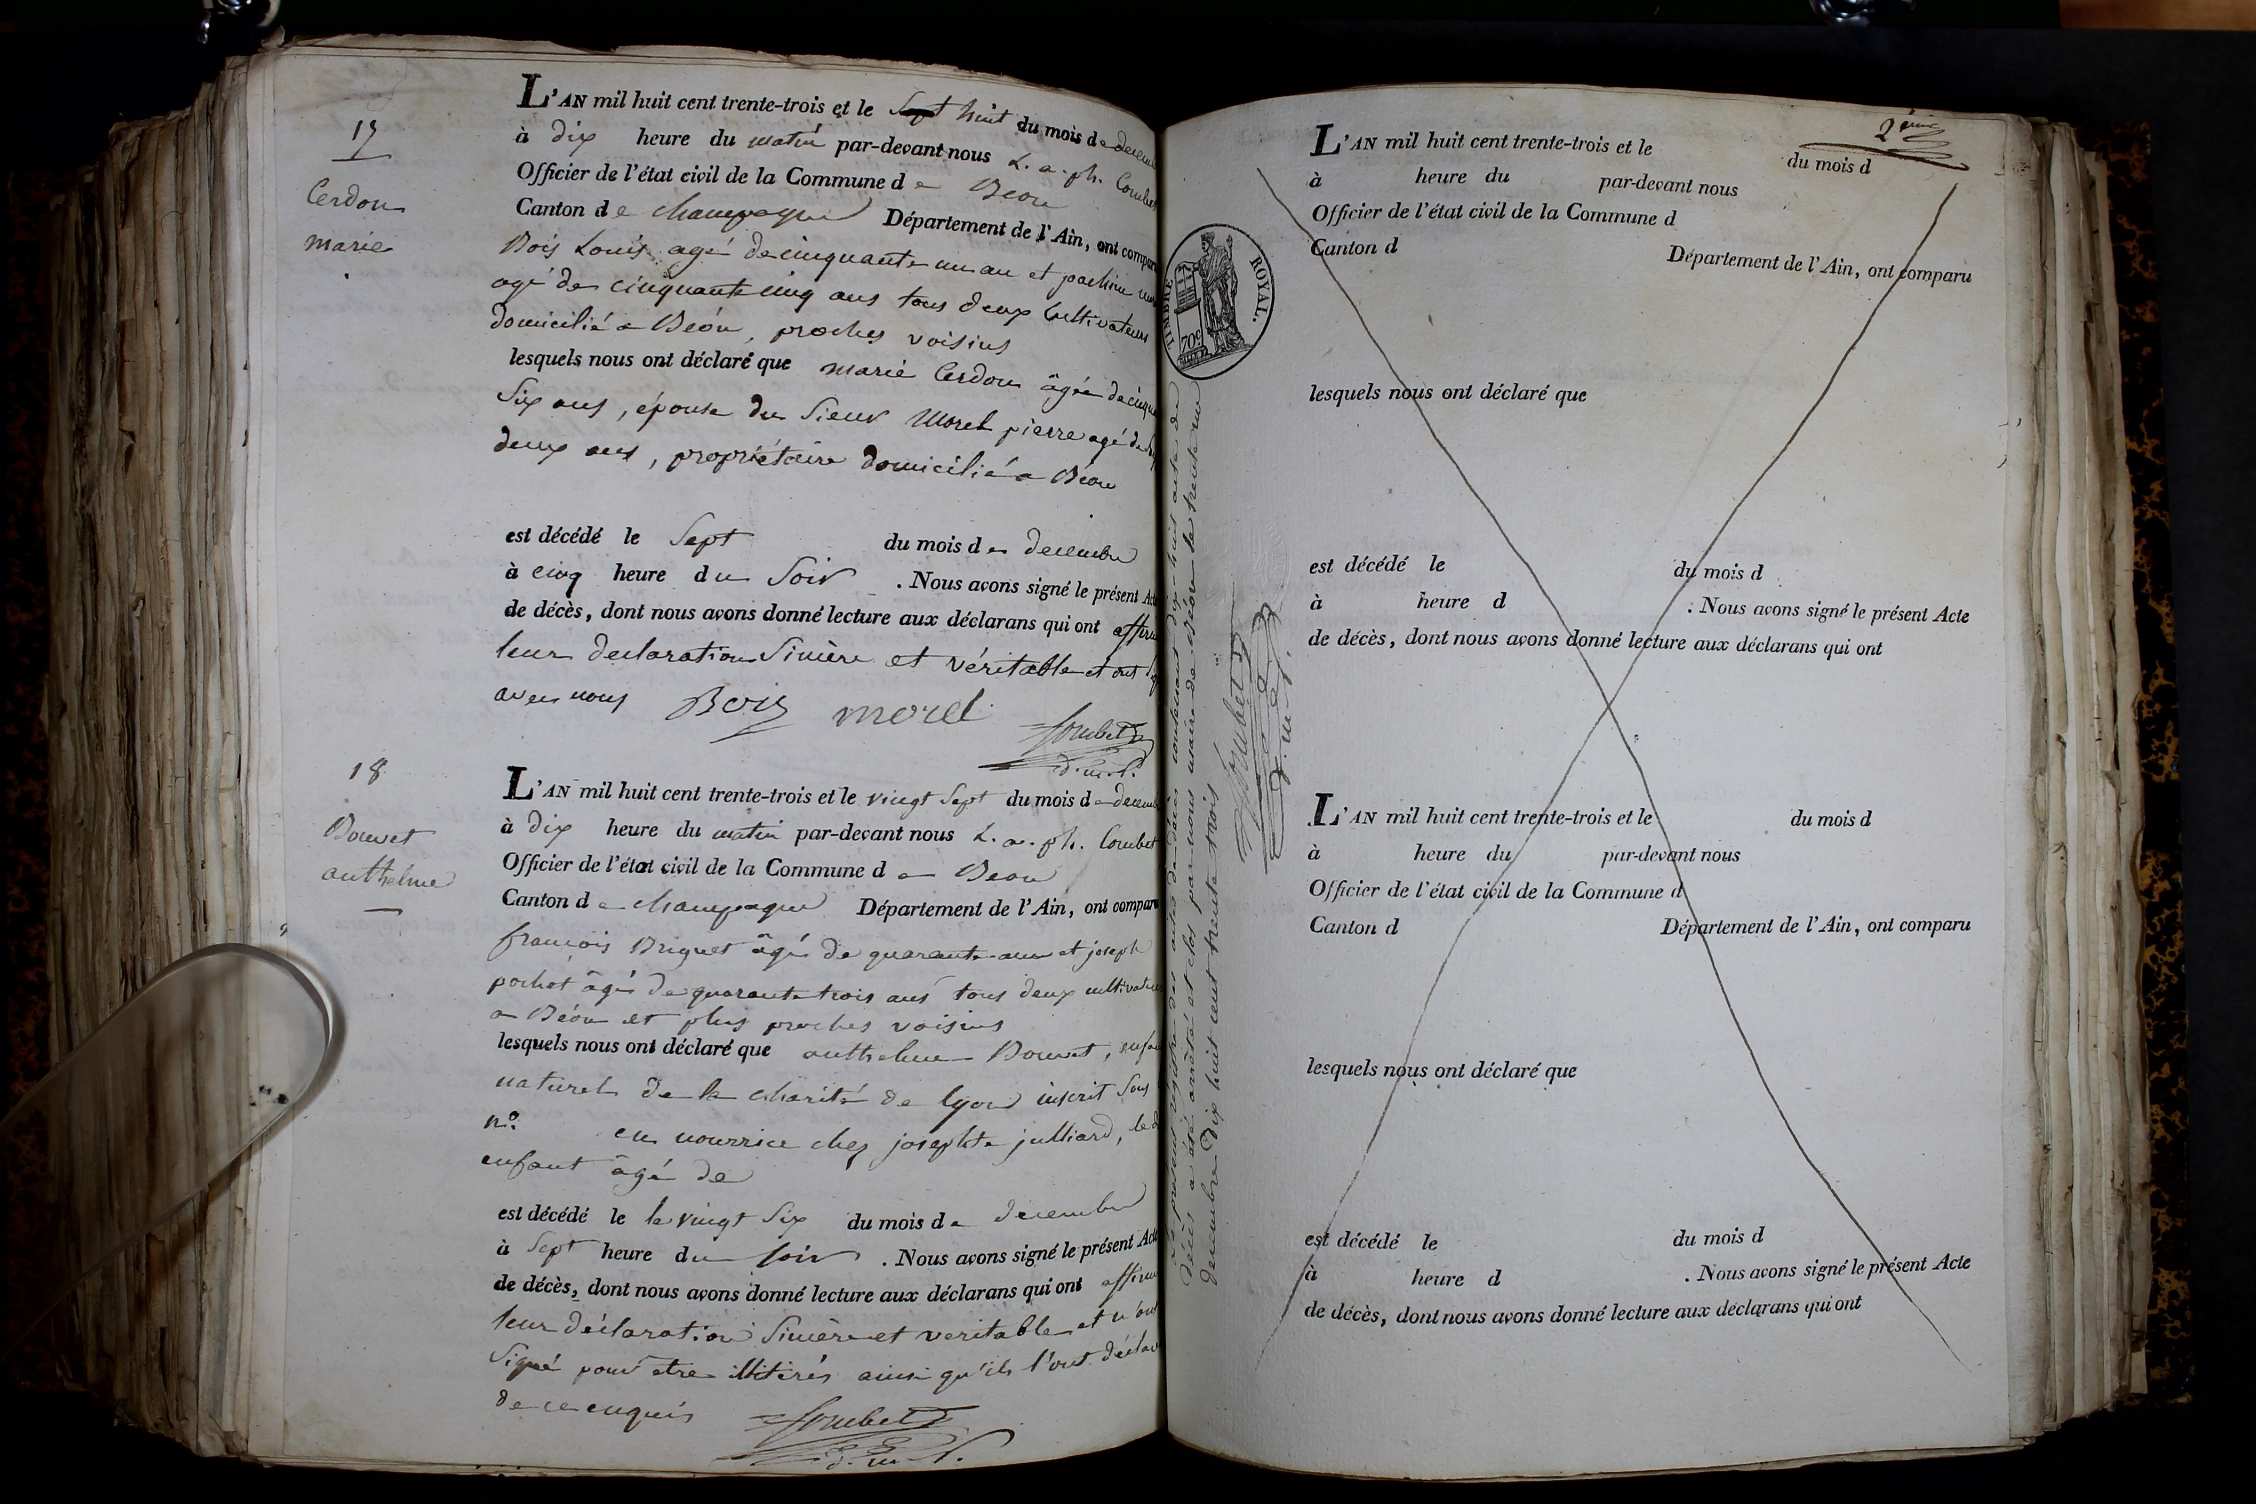 17
Cerdon
marie
L'AN mil huit cent trente-trois et le Sept huit du mois de decem
à dix heure du matin par-devant nous L. a. ph. Combet
Officier de l'état civil de la Commune de Beon
Canton de champagne Département de l'Ain, ont compar
Bois Louis agé de cinquante un an et
agé de cinquante cinq ans tous deux Cultivateurs
domicilié a Béon, proches voisins
lesquels nous ont déclaré que marie Cerdon âgée de cinqu
Six ans, épouse du Sieur Morel pierre agé de
deux ans, propriétaire domicilié a Béon
est décédé le Sept du mois de decembre
à cinq heure du Soir . Nous avons signé le présent Act
de décès, dont nous avons donné lecture aux déclarans qui ont affirm
leur declaration Sincère et véritable et ont
avec nous Bois morel
Combet
18
Bouvet
anthelme
L'AN mil huit cent trente-trois et le vingt Sept du mois de decem
à dix heure du matin par-devant nous L. a. ph. Combet
Officier de l'état civil de la Commune de Beon
Canton de champagne Département de l'Ain, ont comparu
françois Briguet âgé de quarante ans et joseph
pochet âgé de quarante trois ans tous deux cultivateu
a Béon et plus proches voisins
lesquels nous ont déclaré que anthelme Bouvet, enfan
naturel de la charité de lyon inscrit Sous
n.º en nourrice chez josephte julliard, led
enfant âgé de
est décédé le le vingt Six du mois de decembre
à Sept heure du soir . Nous avons signé le présent Act
de décès, dont nous avons donné lecture aux déclarans qui ont affirm
leur déclaration Sincère et veritable et n'ont
Signé pour etre illitérés ainsi qu'ils l'ont déclar
de ce enquis Combet
2ème
TIMBRE ROYAL.
70c
Le présent registre des actes de décès contenant dix-huit actes de
décès a été arrêté et clos par nous maire de Béon le trente un
decembre Dix huit cent trente trois
Combet
L'AN mil huit cent trente-trois et le du mois d
à heure du par-devant nous
Officier de l'état civil de la Commune d
Canton d Département de l'Ain, ont comparu
lesquels nous ont déclaré que
est décédé le du mois d
à heure d . Nous avons signé le présent Acte
de décès, dont nous avons donné lecture aux déclarans qui ont
L'AN mil huit cent trente-trois et le du mois d
à heure du par-devant nous
Officier de l'état civil de la Commune d
Canton d Département de l'Ain, ont comparu
lesquels nous ont déclaré que
est décédé le du mois d
à heure d . Nous avons signé le présent Acte
de décès, dont nous avons donné lecture aux déclarans qui ont